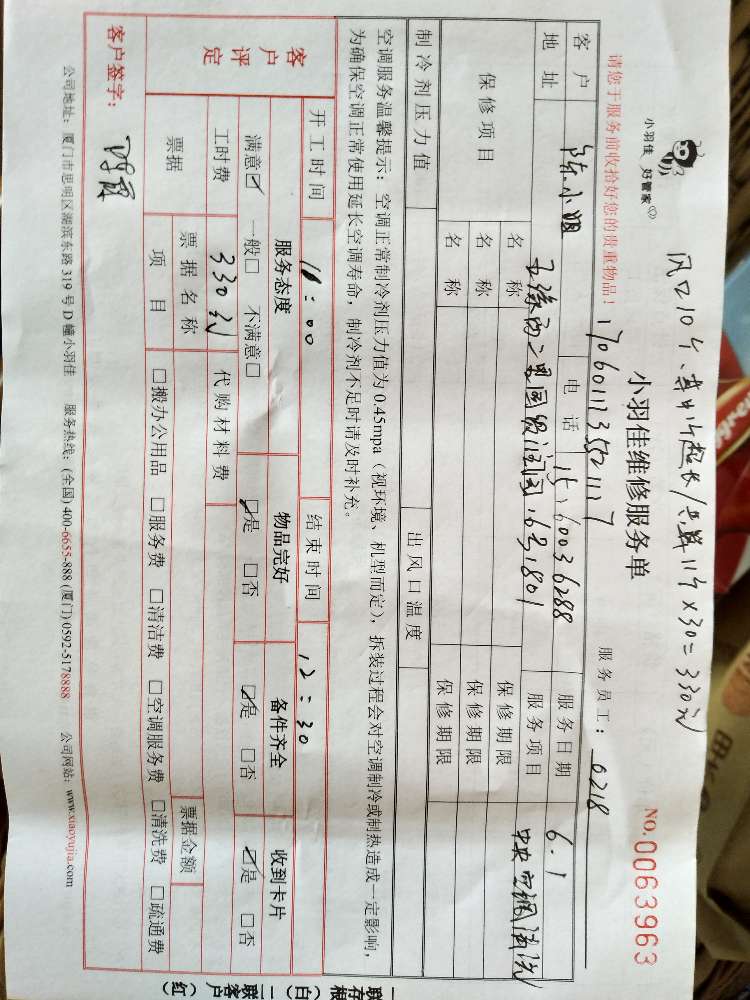 风口10个、其中1个超长/共算11个×30=330元
小羽佳 好管家
小羽佳维修服务单
No.0063963
请您于服务前收拾好您的贵重物品!
17060111352117
服务员工: 0218
客户 陈小姐 电话 15160036288 服务日期 6.1
地址 国贸润园 1801 服务项目 中央空调清洗
保修项目 名称 保修期限
名称 保修期限
名称 保修期限
制冷剂压力值 出风口温度
空调服务温馨提示:空调正常制冷剂压力值为0.45mpa(视环境、机型而定),拆装过程会对空调制冷或制热造成一定影响,
为确保空调正常使用延长空调寿命,制冷剂不足时请及时补充。
开工时间 11:00 结束时间 12:30
客户评定 服务态度 物品完好 备件齐全 收到卡片
满意☑ 一般□ 不满意□ ☑是 □否 ☑是 □否 ☑是 □否
工时费 330元 代购材料费
票据 票据名称 票据金额
项目 □搬办公用品 □服务费 □清洁费 □空调服务费 □清洗费 □疏通费
客户签字:
公司地址:厦门市思明区湖滨东路319号D幢小羽佳 服务热线:(全国)400-6655-888 (厦门)0592-5178888 公司网站:www.xiaoyujia.com
一联存根(白) 二联客户(红)